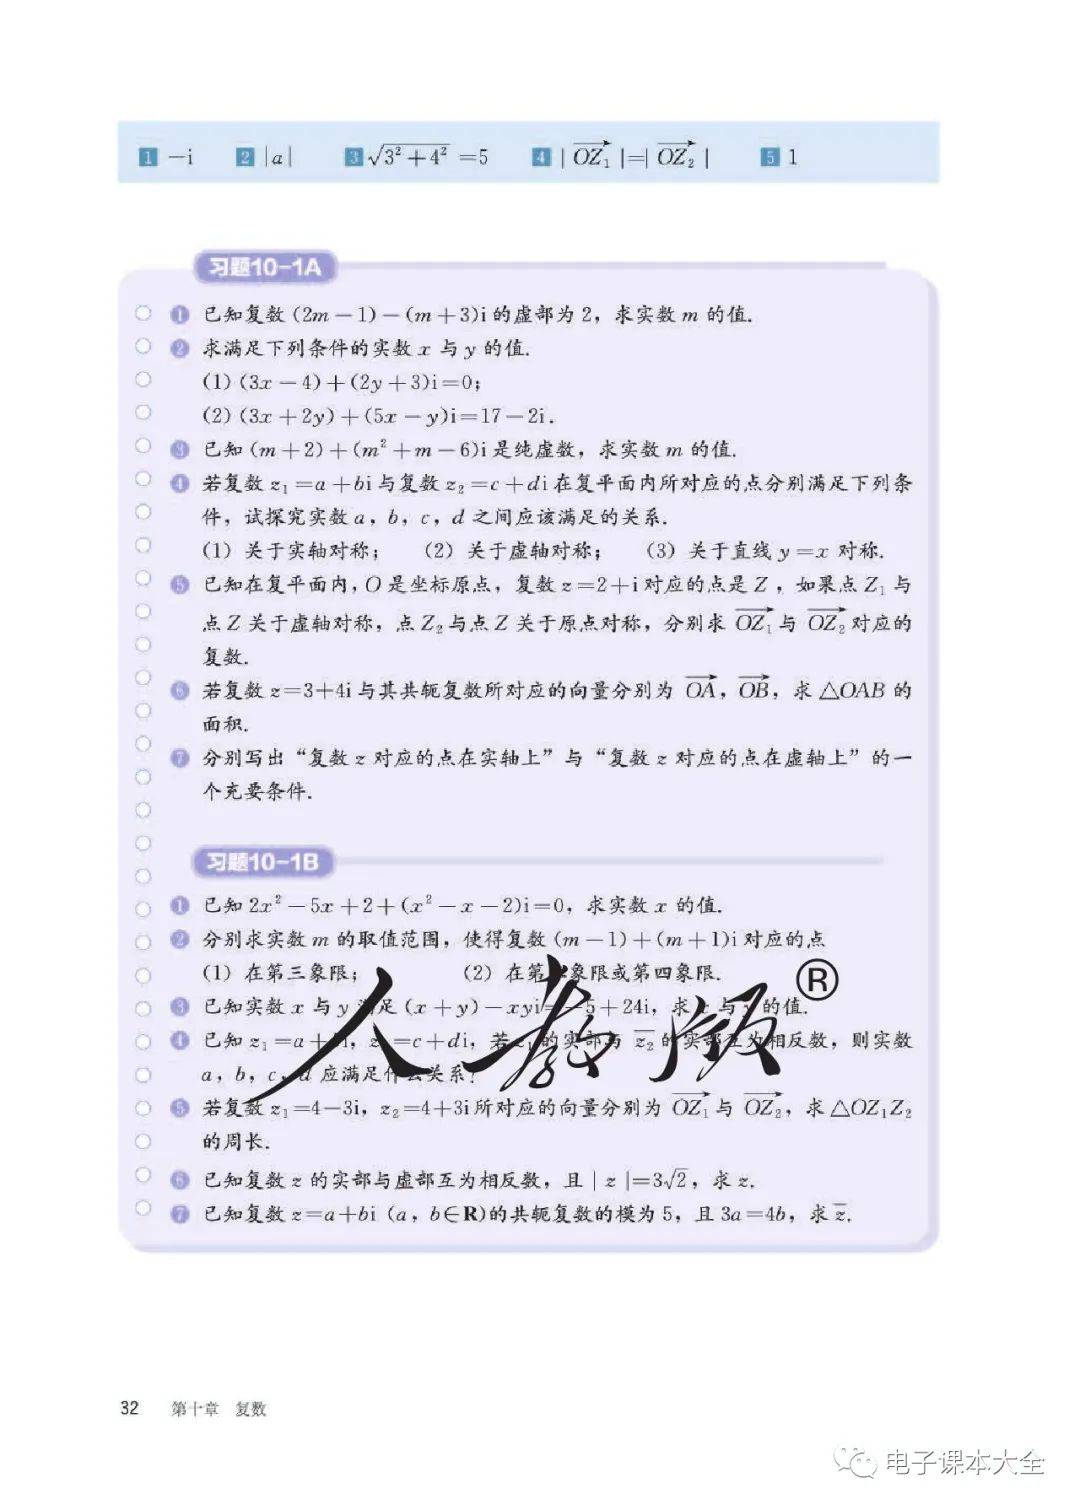 1 −i 2 |a| 3 √3²+4² =5 4 |OZ₁|=|OZ₂| 5 1
习题10-1A
1 已知复数(2m−1)−(m+3)i的虚部为2，求实数m的值.
2 求满足下列条件的实数x与y的值.
(1) (3x−4)+(2y+3)i=0;
(2) (3x+2y)+(5x−y)i=17−2i.
3 已知(m+2)+(m²+m−6)i是纯虚数，求实数m的值.
4 若复数z₁=a+bi与复数z₂=c+di在复平面内所对应的点分别满足下列条
件，试探究实数a，b，c，d之间应该满足的关系.
(1) 关于实轴对称； (2) 关于虚轴对称； (3) 关于直线y=x对称.
5 已知在复平面内，O是坐标原点，复数z=2+i对应的点是Z，如果点Z₁与
点Z关于虚轴对称，点Z₂与点Z关于原点对称，分别求OZ₁与OZ₂对应的
复数.
6 若复数z=3+4i与其共轭复数所对应的向量分别为OA，OB，求△OAB的
面积.
7 分别写出“复数z对应的点在实轴上”与“复数z对应的点在虚轴上”的一
个充要条件.
习题10-1B
1 已知2x²−5x+2+(x²−x−2)i=0，求实数x的值.
2 分别求实数m的取值范围，使得复数(m−1)+(m+1)i对应的点
(1) 在第三象限； (2) 在第 象限或第四象限.
3 已知实数x与y满足(x+y)−xyi=−5+24i，求x与y的值.
4 已知z₁=a+bi，z₂=c+di，若z₁的实部与z̄₂的实部互为相反数，则实数
a，b，c，d应满足什么关系？
5 若复数z₁=4−3i，z₂=4+3i所对应的向量分别为OZ₁与OZ₂，求△OZ₁Z₂
的周长.
6 已知复数z的实部与虚部互为相反数，且|z|=3√2，求z.
7 已知复数z=a+bi（a，b∈R)的共轭复数的模为5，且3a=4b，求z̄.
人教版®
32 第十章 复数
电子课本大全